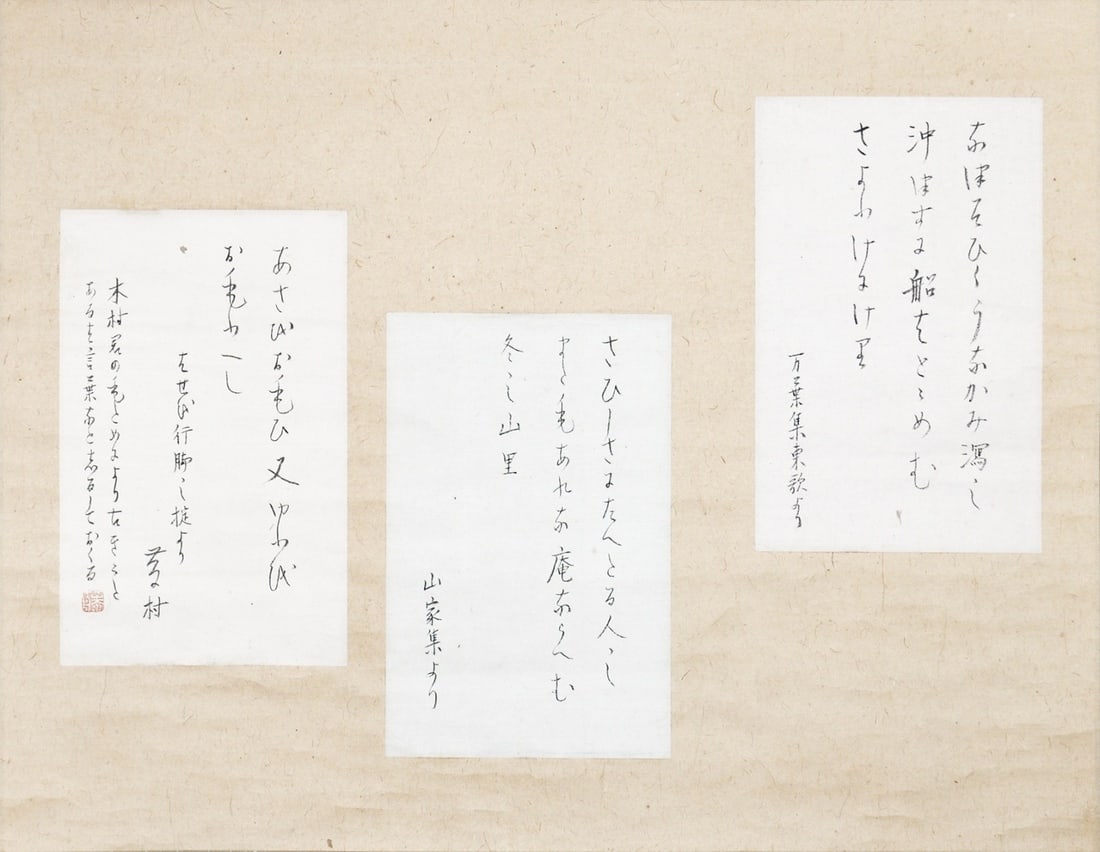 な津そひくうなかみ瀉の
沖津すに船はとゝめむ
さよふけにけ里
万葉集東歌より
さひしさにたへたる人の
また毛あれな庵ならへむ
冬の山里
山家集より
あさをお毛ひ又ゆふを
お毛ふへし
はせを行脚の掟より
藤村
木村君の毛とめにより古きうた
あるは言葉なとしるしておくる